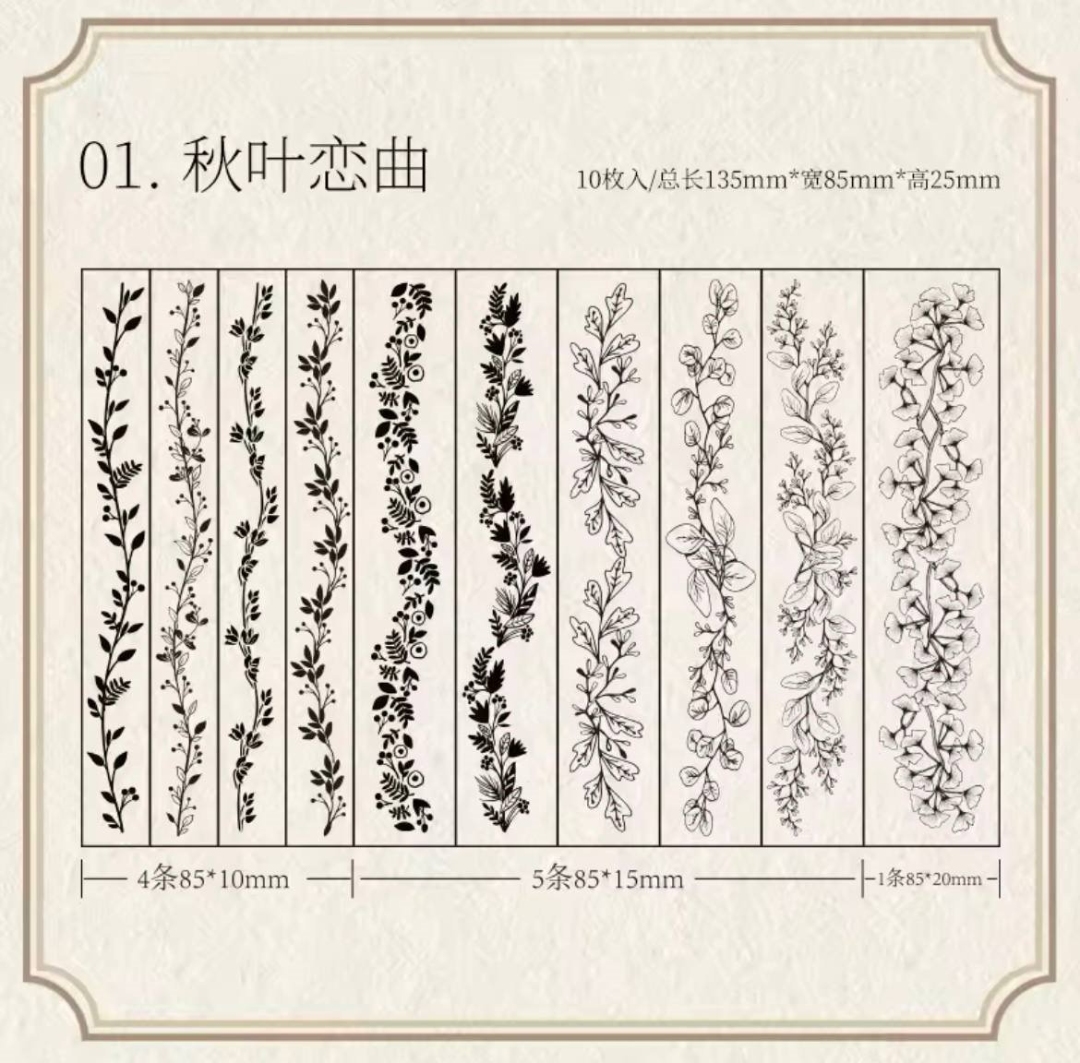 01. 秋叶恋曲
10枚入/总长135mm*宽85mm*高25mm
4条85*10mm
5条85*15mm
1条85*20mm